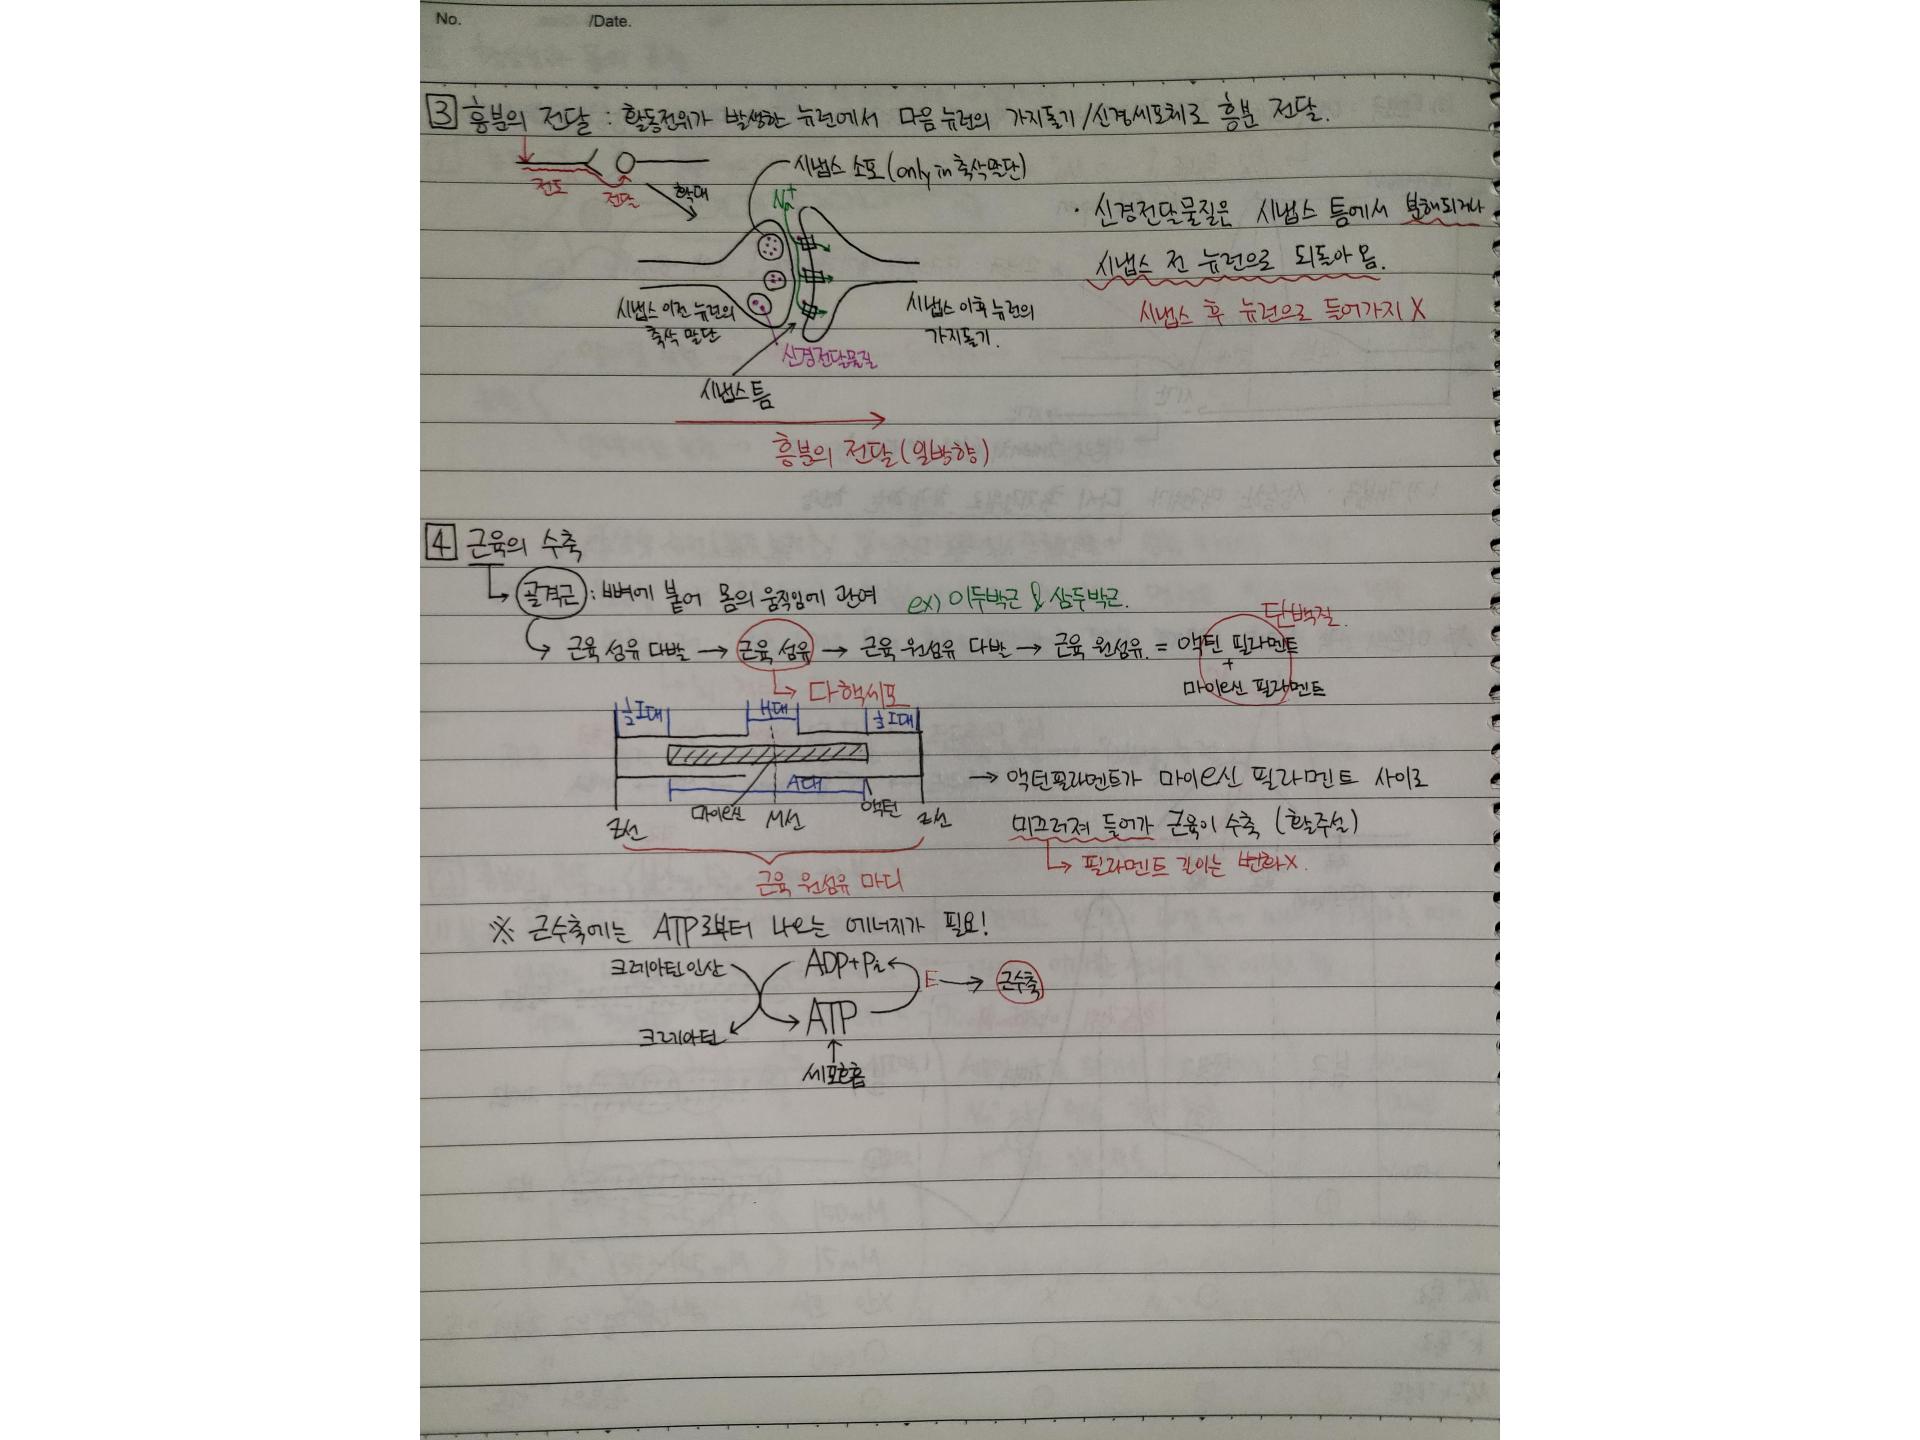 No. /Date.
3 흥분의 전달 : 활동전위가 발생한 뉴런에서 다음 뉴런의 가지돌기/신경세포체로 흥분 전달.
전도
전달
확대
시냅스 소포 (only in 축삭말단)
Na+
시냅스 이전 뉴런의
축삭 말단
시냅스 이후 뉴런의
가지돌기.
신경전달물질
시냅스 틈
흥분의 전달 (일방향)
· 신경전달물질은 시냅스 틈에서 분해되거나
시냅스 전 뉴런으로 되돌아 옴.
시냅스 후 뉴런으로 들어가지 X
4 근육의 수축
골격근 : 뼈에 붙어 몸의 움직임에 관여 ex) 이두박근 & 삼두박근.
단백질.
근육 섬유 다발 → 근육 섬유 → 근육 원섬유 다발 → 근육 원섬유. = 액틴 필라멘트
+
마이오신 필라멘트
다핵세포
½I대 H대 ½I대
A대
마이오신 M선 액틴
Z선 Z선
근육 원섬유 마디
→ 액틴필라멘트가 마이오신 필라멘트 사이로
미끄러져 들어가 근육이 수축 (활주설)
→ 필라멘트 길이는 변화X.
※ 근수축에는 ATP로부터 나오는 에너지가 필요!
크레아틴인산 ADP+Pi E → 근수축
크레아틴 ATP
세포호흡